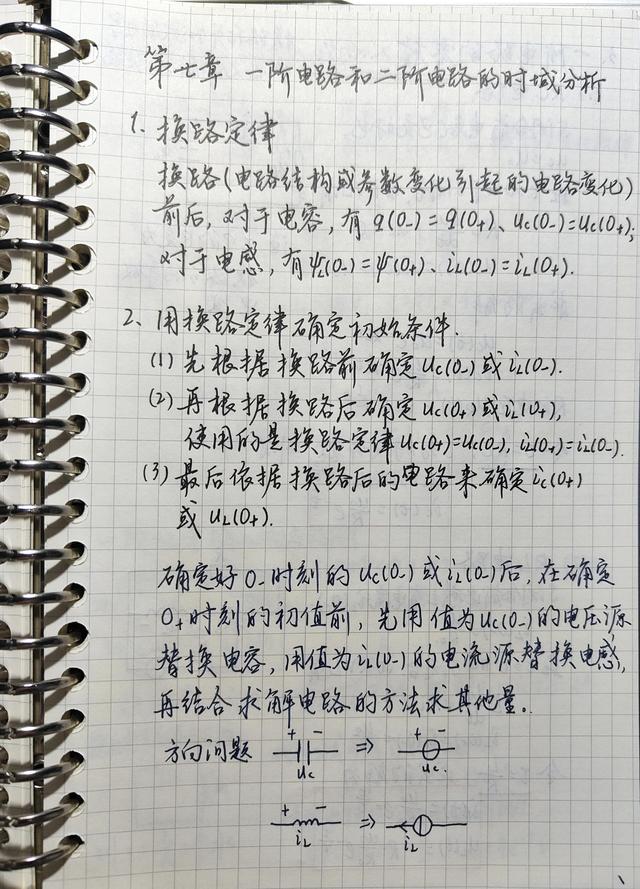 第七章 一阶电路和二阶电路的时域分析
1. 换路定律
换路(电路结构或参数变化引起的电路变化)
前后,对于电容,有 q(0-)=q(0+)、uc(0-)=uc(0+);
对于电感,有ψL(0-)=ψ(0+)、iL(0-)=iL(0+).
2、用换路定律确定初始条件.
(1) 先根据换路前确定uc(0-)或iL(0-).
(2) 再根据换路后确定uc(0+)或iL(0+),
使用的是换路定律uc(0+)=uc(0-), iL(0+)=iL(0-).
(3) 最后依据换路后的电路来确定ic(0+)
或uL(0+).
确定好0-时刻的uc(0-)或iL(0-)后,在确定
0+时刻的初值前,先用值为uc(0-)的电压源
替换电容,用值为iL(0-)的电流源替换电感,
再结合求解电路的方法求其他量.
方向问题 + - ⇒ + -
uc uc.
+ - ⇒
iL iL